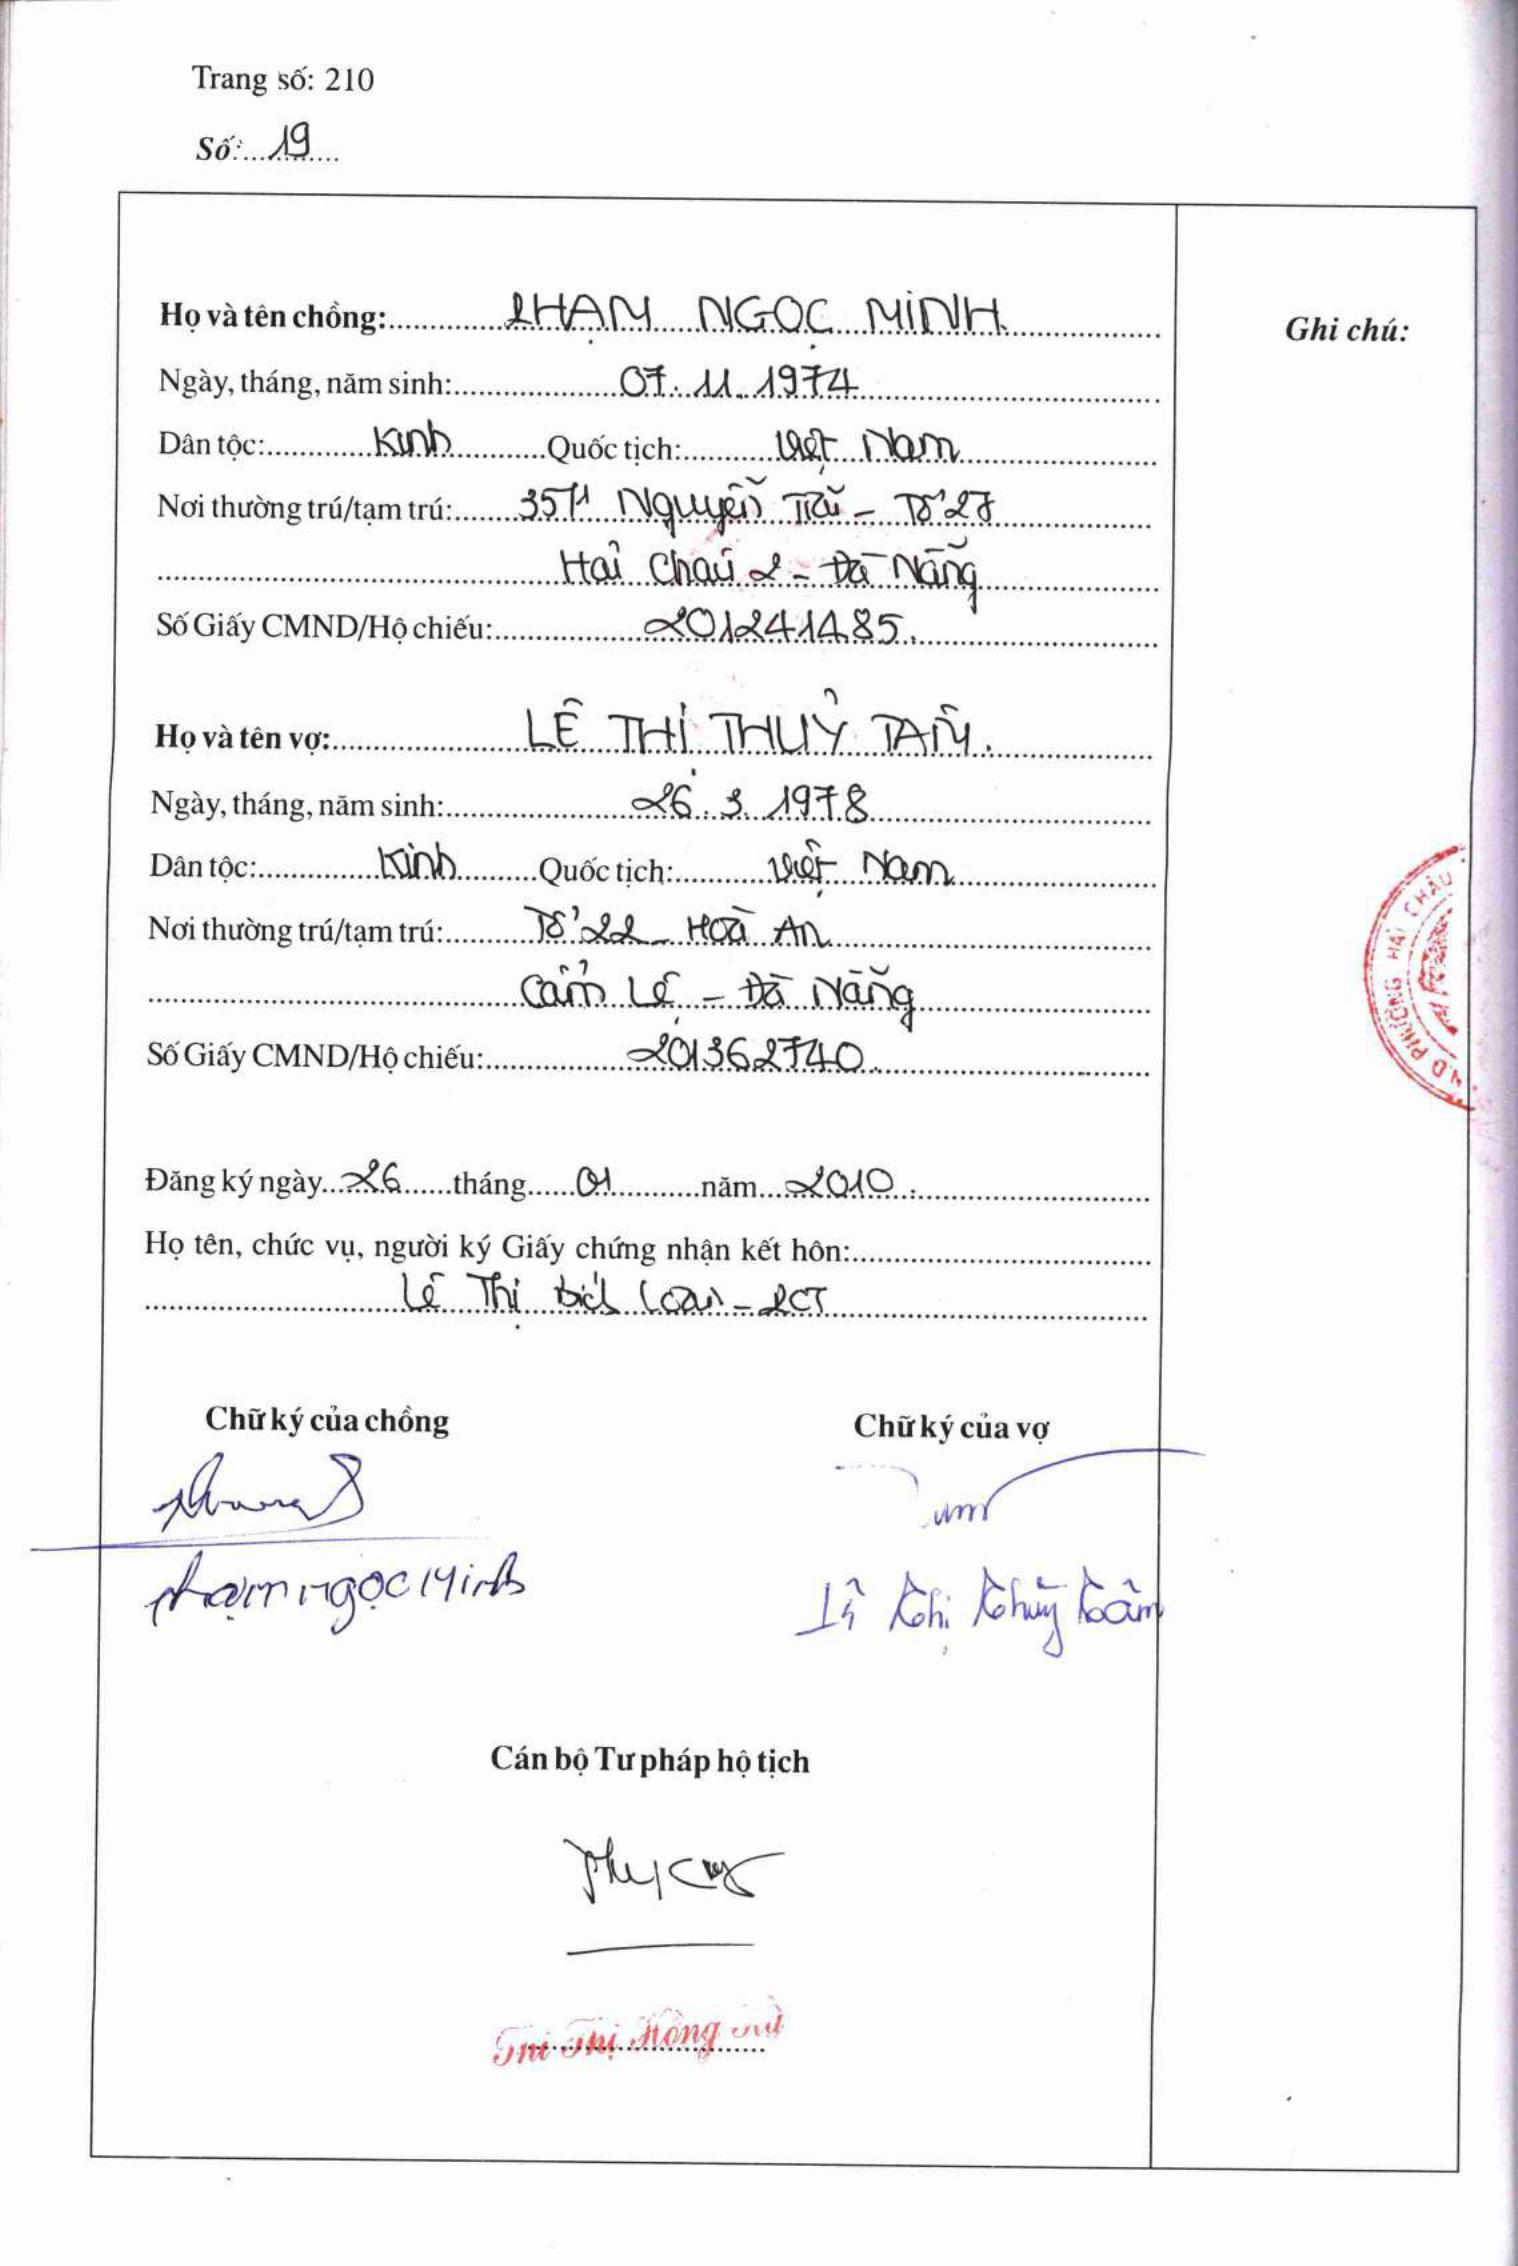 Trang số: 210
Số: 19
Họ và tên chồng: PHẠM NGỌC MINH
Ghi chú:
Ngày, tháng, năm sinh: 07.11.1974
Dân tộc: Kinh Quốc tịch: Việt Nam
Nơi thường trú/tạm trú: Nguyễn Trãi - Tổ 27
Hải Châu 2 - Đà Nẵng
Số Giấy CMND/Hộ chiếu: 201241485.
Họ và tên vợ: LÊ THỊ THUỶ TÂM.
Ngày, tháng, năm sinh: 26.3.1978
Dân tộc: Kinh Quốc tịch: Việt Nam
Nơi thường trú/tạm trú: Tổ 22 - Hoà An
Cẩm Lệ - Đà Nẵng
Số Giấy CMND/Hộ chiếu: 201362740.
PHƯỜNG HẢI CHÂU
Đăng ký ngày 26 tháng 01 năm 2010.
Họ tên, chức vụ, người ký Giấy chứng nhận kết hôn:
Lê Thị Bích Loan - PCT
Chữ ký của chồng Chữ ký của vợ
Phạm Ngọc Minh Lê Thị Thủy Tâm
Cán bộ Tư pháp hộ tịch
Thị Hồng